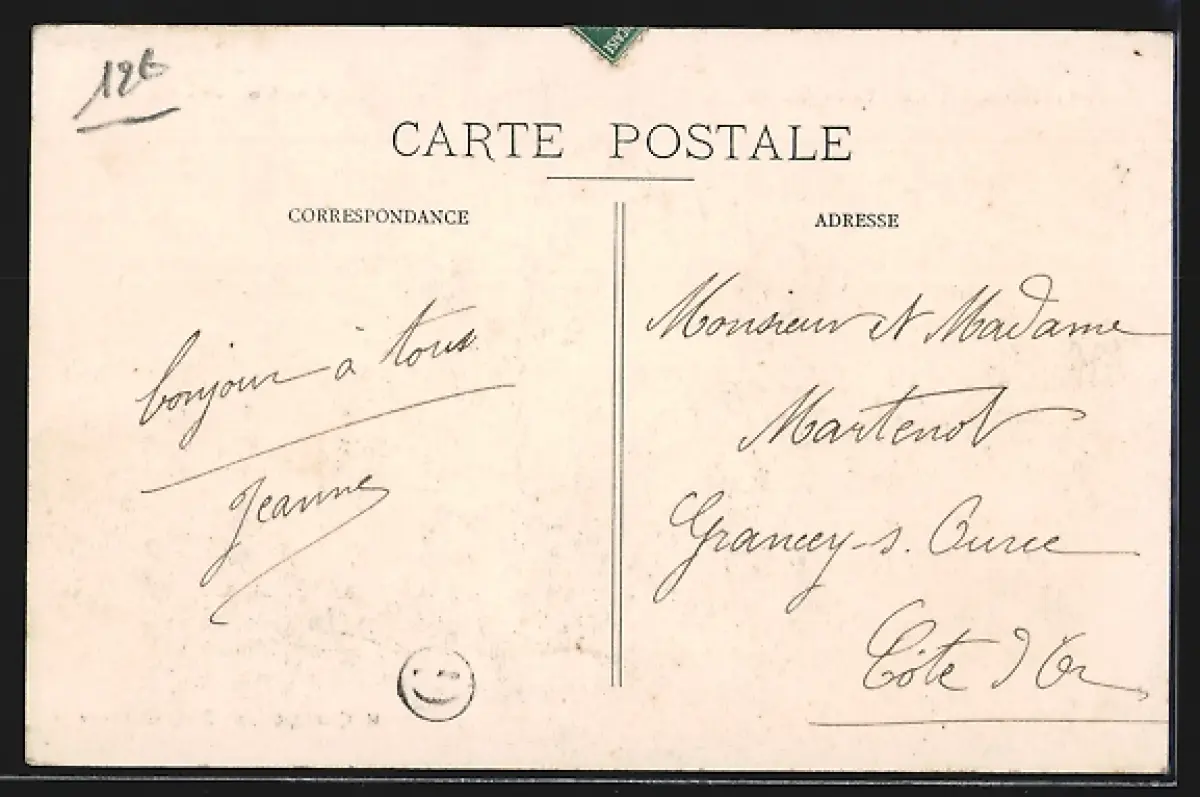 12€
CARTE POSTALE
CORRESPONDANCE
ADRESSE
bonjour à tous
Jeanne
Monsieur et Madame
Martenot
Grancey-s. Ource
Côte d'Or